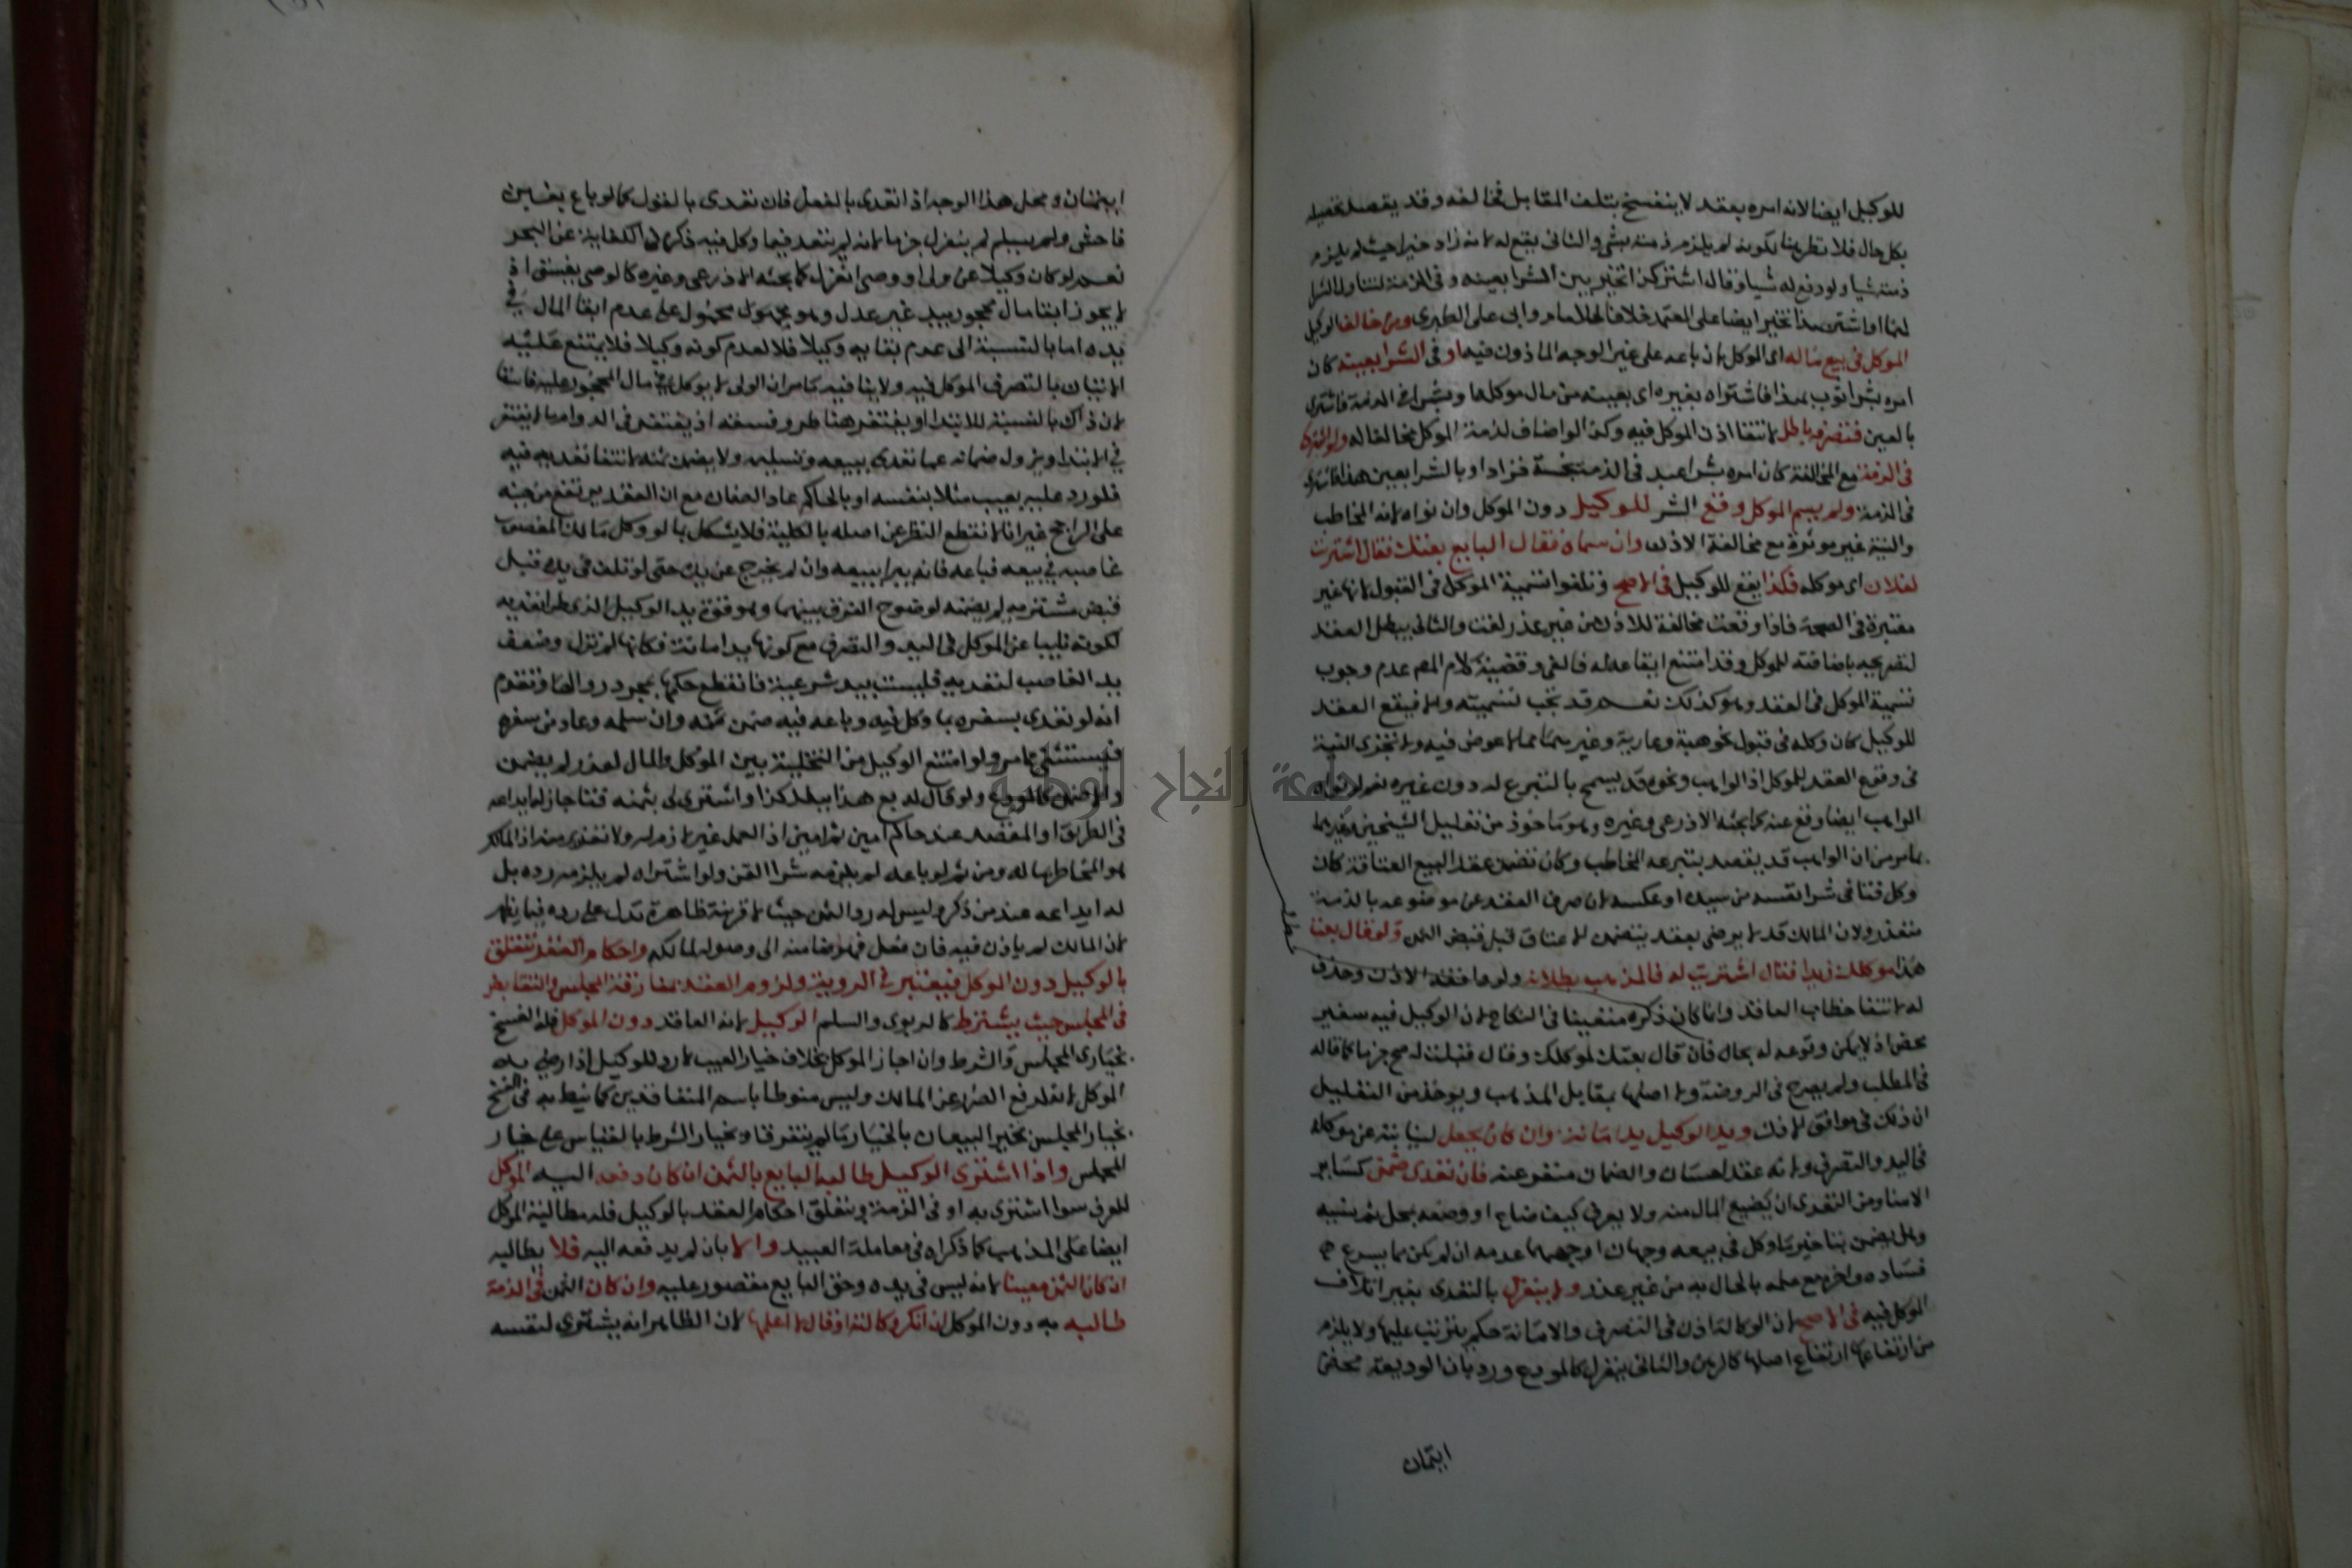 للوكيل ايضا لانه امره بعقد لا ينفسخ بتلف المقابل فخالفه وقد يقصد تحصيله
بكل حال فلا نظر هنا لكونه لم يلزم ذمته بشي والثاني يقع له لانه زاد خيرا حيث لم يلزم
ذمته شيا ولو دفع له شيا وقال اشتر كذا تخير بين الشرا بعينه وفي الذمة لتناول الشرا
لهما او اشتر بهذا تخير ايضا على المعتمد خلافا للامام وابى على الطبرى ومتى خالف الوكيل
الموكل فى بيع ماله اى الموكل بان باعه على غير الوجه الماذون فيه او فى الشرا بعينه كان
امره بشرا ثوب بهذا فاشتراه بغيره اى بعينه من مال موكله او بشرا فى الذمة فاشترى
بالعين فتصرفه باطل لانتفا اذن الموكل فيه وكذا لو اضاف لذمة الموكل مخالفا له ولو اشترى
فى الذمة مع المخالفة كان امره بشرا عبد فى الذمة بخمسة فزاد او بالشرا بعين هذا فاشترى
فى الذمة ولم يسم الموكل وقع الشر للوكيل دون الموكل وان نواه لانه المخاطب
والنية غير موثرة مع مخالفة الاذن وان سماه فقال البايع بعتك فقال اشتريت
لفلان اى موكله فكذا يقع للوكيل فى الاصح وتلغوا تسمية الموكل فى القبول لانها غير
معتبرة فى الصحة فاذا وقعت مخالفة للاذن من غير عذر لغت والثانى يبطل العقد
لتصريحه باضافته للموكل وقد امتنع ايقاعه له فالغى وقضية كلام المص عدم وجوب
تسمية الموكل فى العقد وهو كذلك نعم قد تجب تسميته والا فيقع العقد
للوكيل كان وكله فى قبول نحو هبة وعارية وغيرهما مما لا عوض فيه ولا تجزى النية
فى وقوع العقد للموكل اذ الواهب ونحوه قد يسمح بالتبرع له دون غيره نعم لو نواه
الواهب ايضا وقع عنه كما بحثه الاذرعى وغيره وهو ماخوذ من تعليل الشيخين وغيرهما
بما مر من ان الواهب قد يقصد بتبرعه المخاطب وكان تضمن عقد البيع العتاقة كان
وكل قنا فى شرا نفسه من سيده او عكسه لان صرف العقد عن موضوعه بالذمة
متعذر ولان المالك قد لا يرضى بعقد يتضمن للاعتاق قبل قبض الثمن ولو قال بعت
هذا موكلك زيدا فقال اشتريت له فالمذهب بطلانه ولو وافقه الاذن وحذف
له لانتفا خطاب العاقد وانما كان ذكره متعينا فى النكاح لان الوكيل فيه سفير
محض اذ لا يمكن وقوعه له بحال فان قال بعتك لموكلك وقال قبلت له صح جزما كما قاله
فى المطلب ولم يصرح فى الروضة ولا اصلها بمقابل المذهب ويوخذ من التعليل
ان ذلك فى موافق للاذن ويد الوكيل يد امانة وان كان بجعل لنيابته عن موكله
فى اليد والتصرف ولانه عقد احسان والضمان منفر عنه فان تعدى ضمن كساير
الامنا ومن التعدى ان يضيع المال منه ولا يعرف كيف ضاع او وضعه بمحل ثم نسيه
وهل يضمن بتاخير ما وكل فى بيعه وجهان اوجههما عدمه ان لم يكن مما يسرع
فساده واخره مع علمه بالحال به من غير عذر ولا ينعزل بالتعدى بغير اتلاف
الموكل فيه فى الاصح لان الوكالة اذن فى التصرف والامانة حكم يترتب عليها ولا يلزم
من ارتفاعها ارتفاع اصلها كالرهن والثانى ينعزل كالمودع ورد بان الوديعة محض
ايتمان
ايتمان ومحل هذا الوجه اذا تعدى بالفعل فان تعدى بالقول كما لو باع بغبن
فاحش ولم يسلم لم ينعزل جزما لانه لم يتعد فيما وكل فيه ذكره فى الكفاية عن البحر
نعم لو كان وكيلا عن ولى او وصى انعزل كما بحثه الاذرعى وغيره كالوصى يفسق اذ
لا يجوز ابقا مال محجور بيد غير عدل وهو محمول على عدم ابقا المال فى
يده اما بالنسبة الى عدم بقايه وكيلا فلا لعدم كونه وكيلا فلا يمتنع عليه
الاتيان بالتصرف الموكل فيه ولا ينافيه ما مر ان الولى لا يوكل فى مال المحجور عليه فاسقا
لان ذاك بالنسبة للابتدا ويغتفر هنا طرو فسقه اذ يغتفر فى الدوام ما لا يغتفر
فى الابتدا ويزول ضمانه عما تعدى ببيعه وتسليمه ولا يضمن ثمنه لانتفا تعديه فيه
فلو رد عليه بعيب مثلا بنفسه او بالحاكم عاد الضمان مع ان العقد يرتفع من حينه
على الراجح غير انا لا نقطع النظر عن اصله بالكلية فلا يشكل بما لو وكل مالك المغصوب
غاصبه فى بيعه فباعه فانه يبرا ببيعه وان لم يخرج عن يده حتى لو تلف فى يده قبل
قبض مشتريه لم يضمنه لوضوح الفرق بينهما وهو قوة يد الوكيل الذى طرا تعديه
لكونه نايبا عن الموكل فى اليد والتصرف مع كونها يد امانة فكانها لم تزل وضعف
يد الغاصب لتعديه فليست بيد شرعية فانقطع حكمها بمجرد زوالها وتقدم
انه لو تعدى بسفره بما وكل فيه وباعه فيه ضمن ثمنه وان سلمه وعاد من سفره
فيستثنى مما مر ولو امتنع الوكيل من التخلية بين الموكل والمال لعذر لم يضمن
والا ضمن كالمودع ولو قال له بع هذا ببلد كذا واشترى لى بثمنه قنا جاز له ايداعه
فى الطريق او المقصد عند حاكم امين ثم امين اذ العمل غير لازم له ولا تعزير منه اذ المالك
هو المخاطر بماله ومن ثم لو باعه لم يلزمه شرا القن ولو اشتراه لم يلزمه رده بل
له ايداعه عند من ذكر وليس له رد الثمن حيث لا قرينة ظاهرة تدل على رده فيما يظهر
لان المالك لم ياذن فيه فان فعل فهو ضامنه الى وصوله لمالكه واحكام العقد تتعلق
بالوكيل دون الموكل فيعتبر فى الروية ولزوم العقد بمفارقة المجلس والتقابض
فى المجلس حيث يشترط كالربوى والسلم الوكيل لانه العاقد دون الموكل فله الفسخ
بخيارى المجلس والشرط وان اجاز الموكل بخلاف خيار العيب لا رد للوكيل اذا رضى به
الموكل لانه لدفع الضرر عن المالك وليس منوطا باسم المتعاقدين كما نيط به فى الفسخ
بخيار المجلس بخبر البيعان بالخيار ما لم يتفرقا وبخيار الشرط بالقياس على خيار
المجلس واذا اشترى الوكيل طالبه البايع بالثمن ان كان دفعه اليه الموكل
للعرف سوا اشترى به او فى الذمة ويتعلق احكام العقد بالوكيل فله مطالبة الموكل
ايضا على المذهب كما ذكراه فى معاملة العبيد والا بان لم يدفعه اليه فلا يطالبه
ان كان الثمن معينا لانه ليس فى يده وحق البايع مقصور عليه وان كان الثمن فى الذمة
طالبه به دون الموكل ان انكر وكالته او قال لا اعلمها لان الظاهر انه يشترى لنفسه